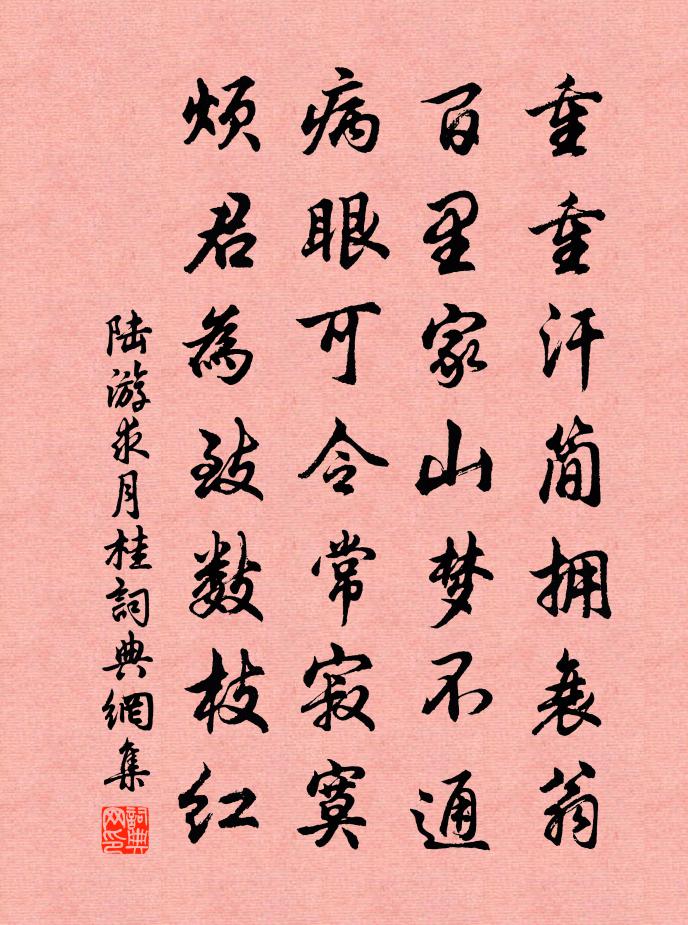 重重汗简拥衰翁
百里家山梦不通
病眼可令常寂寞
烦君為致数枝红
陆游求月桂詞典網集
詞典网印